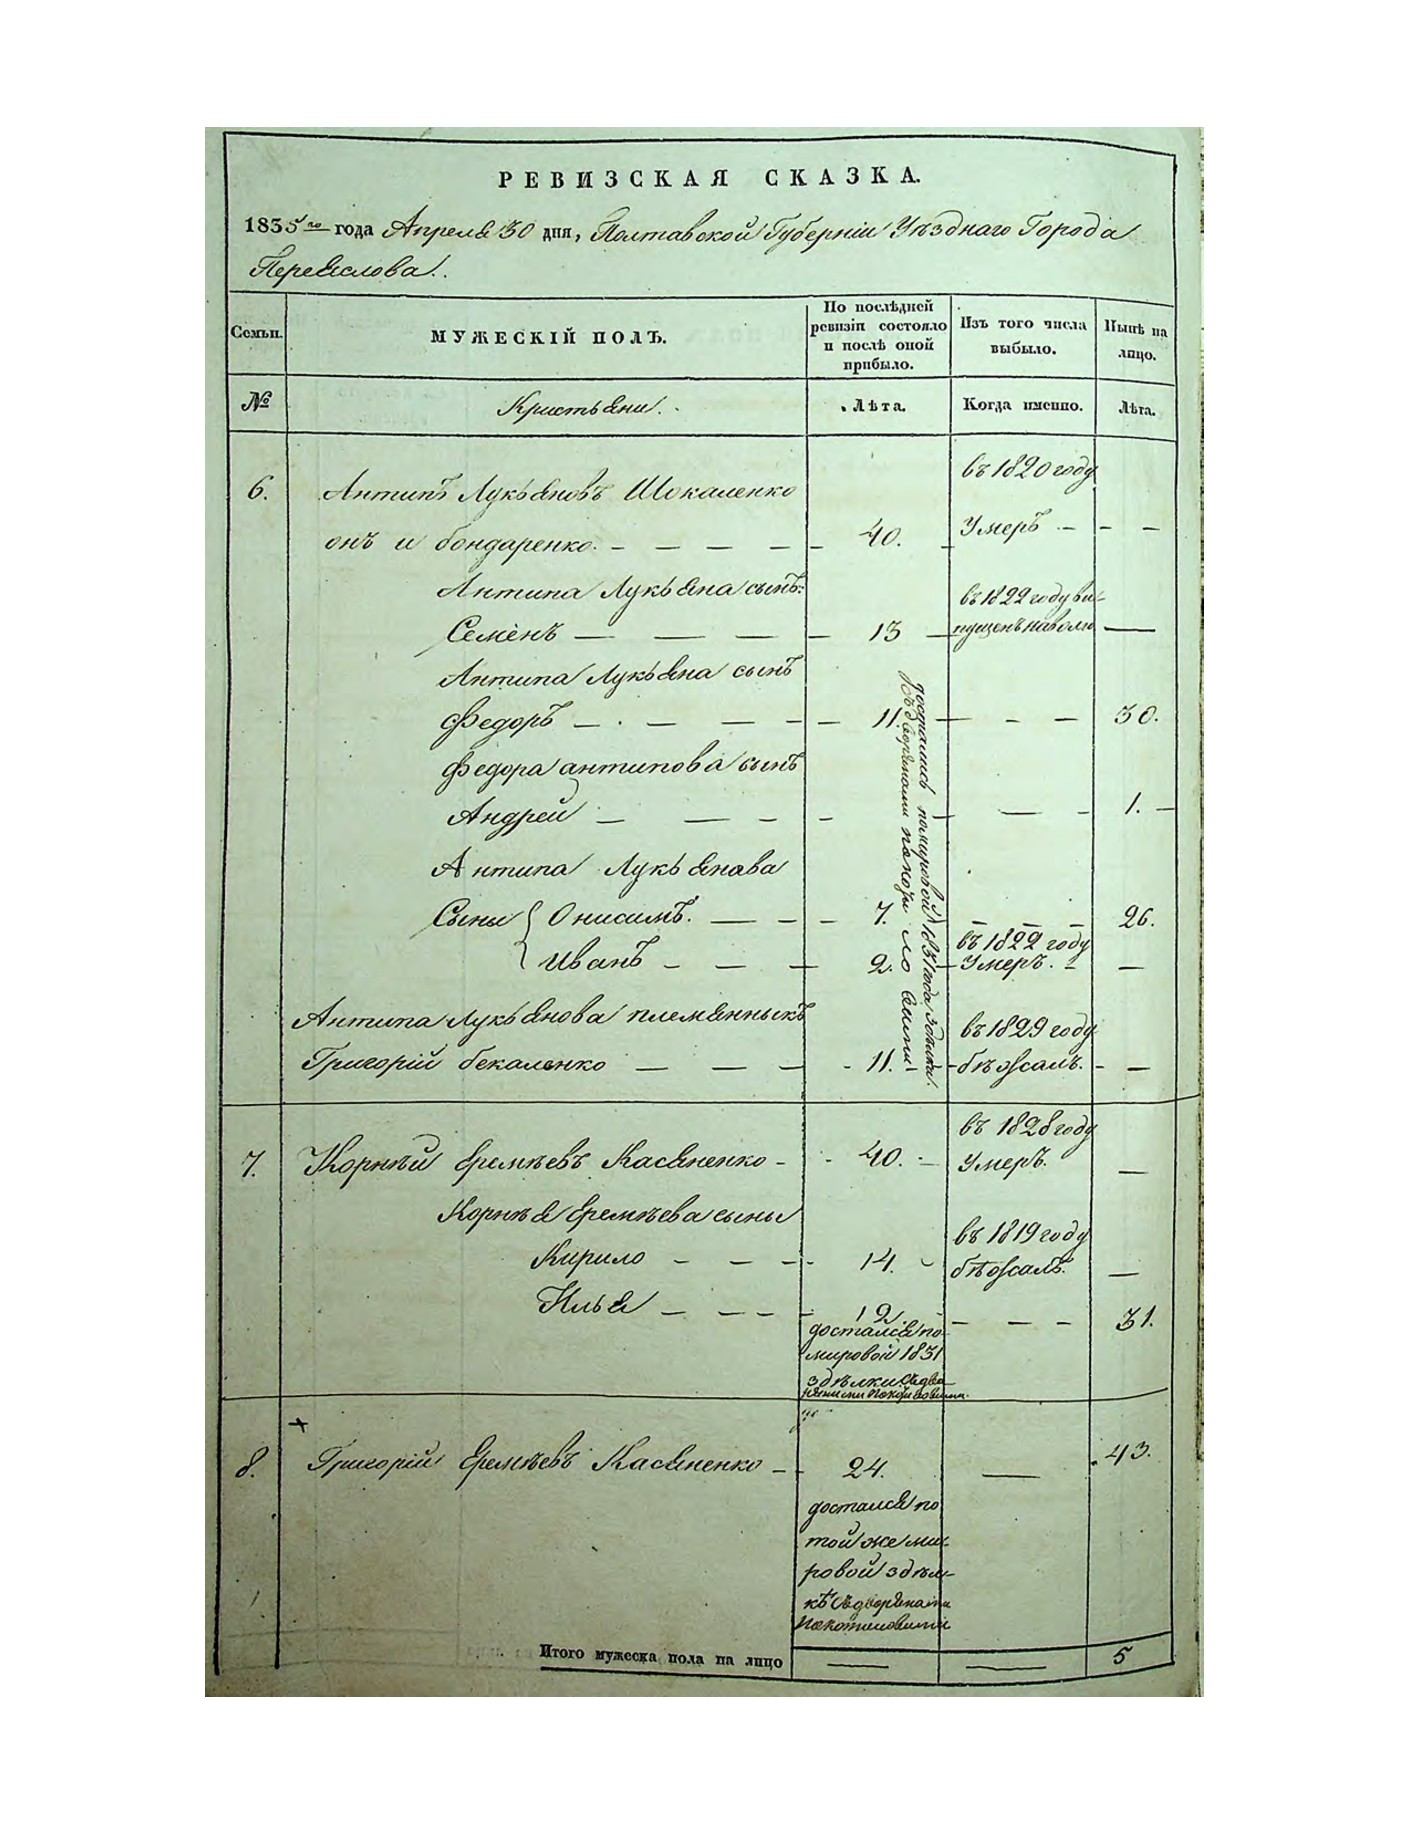 РЕВИЗСКАЯ СКАЗКА.
1835го года Апреля 30 дня, Полтавской Губерніи Уѣзднаго Города
Переяслова.
Семьи.
МУЖЕСКІЙ ПОЛЪ.
По послѣдней
ревизіи состояло
и послѣ оной
прибыло.
Изъ того числа
выбыло.
Нынѣ на
лицо.
№
Кристьяни.
Лѣта.
Когда именно.
Лѣта.
6.
Антипъ Лукьяновъ Шокаленко
въ 1820 году
онъ и бондаренко. — — — — — 40. — Умеръ — — —
Антипа Лукьяна сынъ:
въ 1822 году ви-
Семенъ — — — — 13 — пущенъ наволю —
Антипа Лукьяна сынъ
Федоръ — — — — — 11. — — — 30.
Федора антипова сынъ
Андрей — — — — — — — 1. —
Антипа Лукьянова
Сыны { Онисимъ. — — — 7. — — — 26.
въ 1822 году
Иванъ — — — 2. — Умеръ. — —
достались помировой 1831 года здѣлки
съ дворянами покотиловими
Антипа Лукьянова племянныкъ
въ 1829 году
Григорій бекаленко — — — - 11. — бѣжалъ. - —
въ 1828 году
7.
Корнѣй Еремѣевъ Касяненко - - 40. - Умеръ. —
Корнѣя Еремѣева сыны
въ 1819 году
Кирило — — — 14. бѣжалъ. —
Илья — — — — 12. — — — 31.
достался по
мировой 1831
здѣлки съ дво
рянами Покотиловими.
8.
Григорій Еремѣевъ Касяненко — 24. — 43.
достался по
той же ми-
ровой здѣл-
кѣ съ дворянами
Покотиловими
Итого мужеска пола на лицо — — 5